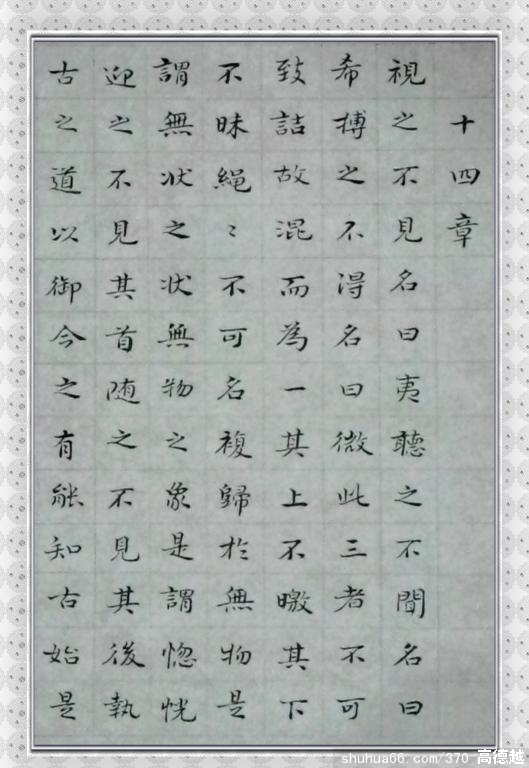 十四章
視之不見名曰夷聽之不聞名曰
希搏之不得名曰微此三者不可
致詰故混而為一其上不曒其下
不昧繩〻不可名複歸於無物是
謂無状之状無物之象是謂惚恍
迎之不見其首随之不見其後執
古之道以御今之有能知古始是
shuhua66.com/370 高德越